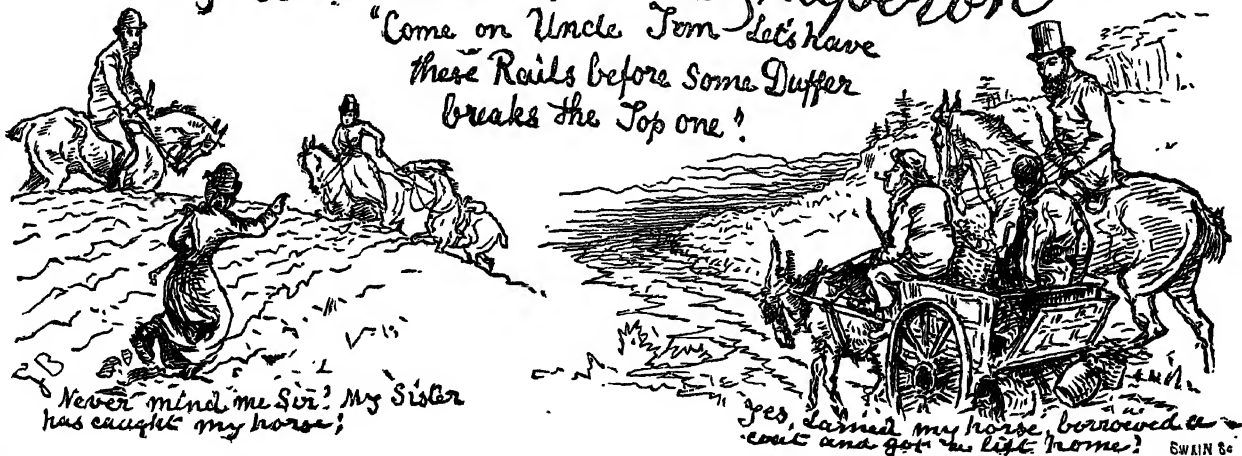 "Come on Uncle Tom - Let's have
these Rails before some Duffer
breaks the Top one!
Never mind me Sir! My Sister
has caught my horse!
Yes, Lamed my horse, borrowed a
coat and got a lift home!
SWAIN Sc